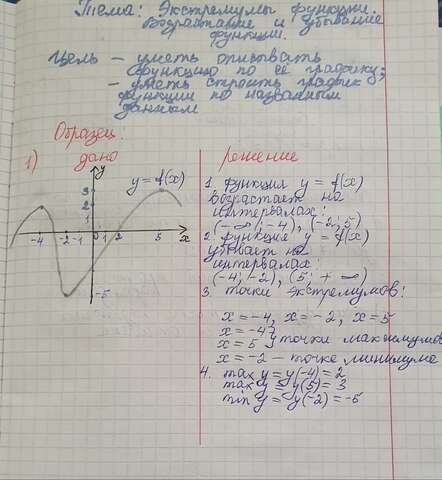 Тема: Экстремумы функции.
Возрастание и убывание
функции.
Цель – уметь описывать
функцию по её графику;
– уметь строить график
функции по названным
данным
Образец:
1) дано
y
y = f(x)
3
2
1
-4 -2 -1 0 1 2 5 x
-5
решение
1. функция y = f(x)
возрастает на
интервалах:
(-∞; -4), (-2; 5)
2. функция y = f(x)
убывает на
интервалах:
(-4; -2), (5; +∞)
3. точки экстремумов:
x = -4, x = -2, x = 5
x = -4 }
x = 5 } точки максимумов
x = -2 – точка минимума
4. max y = y(-4) = 2
max y = y(5) = 3
min y = y(-2) = -5